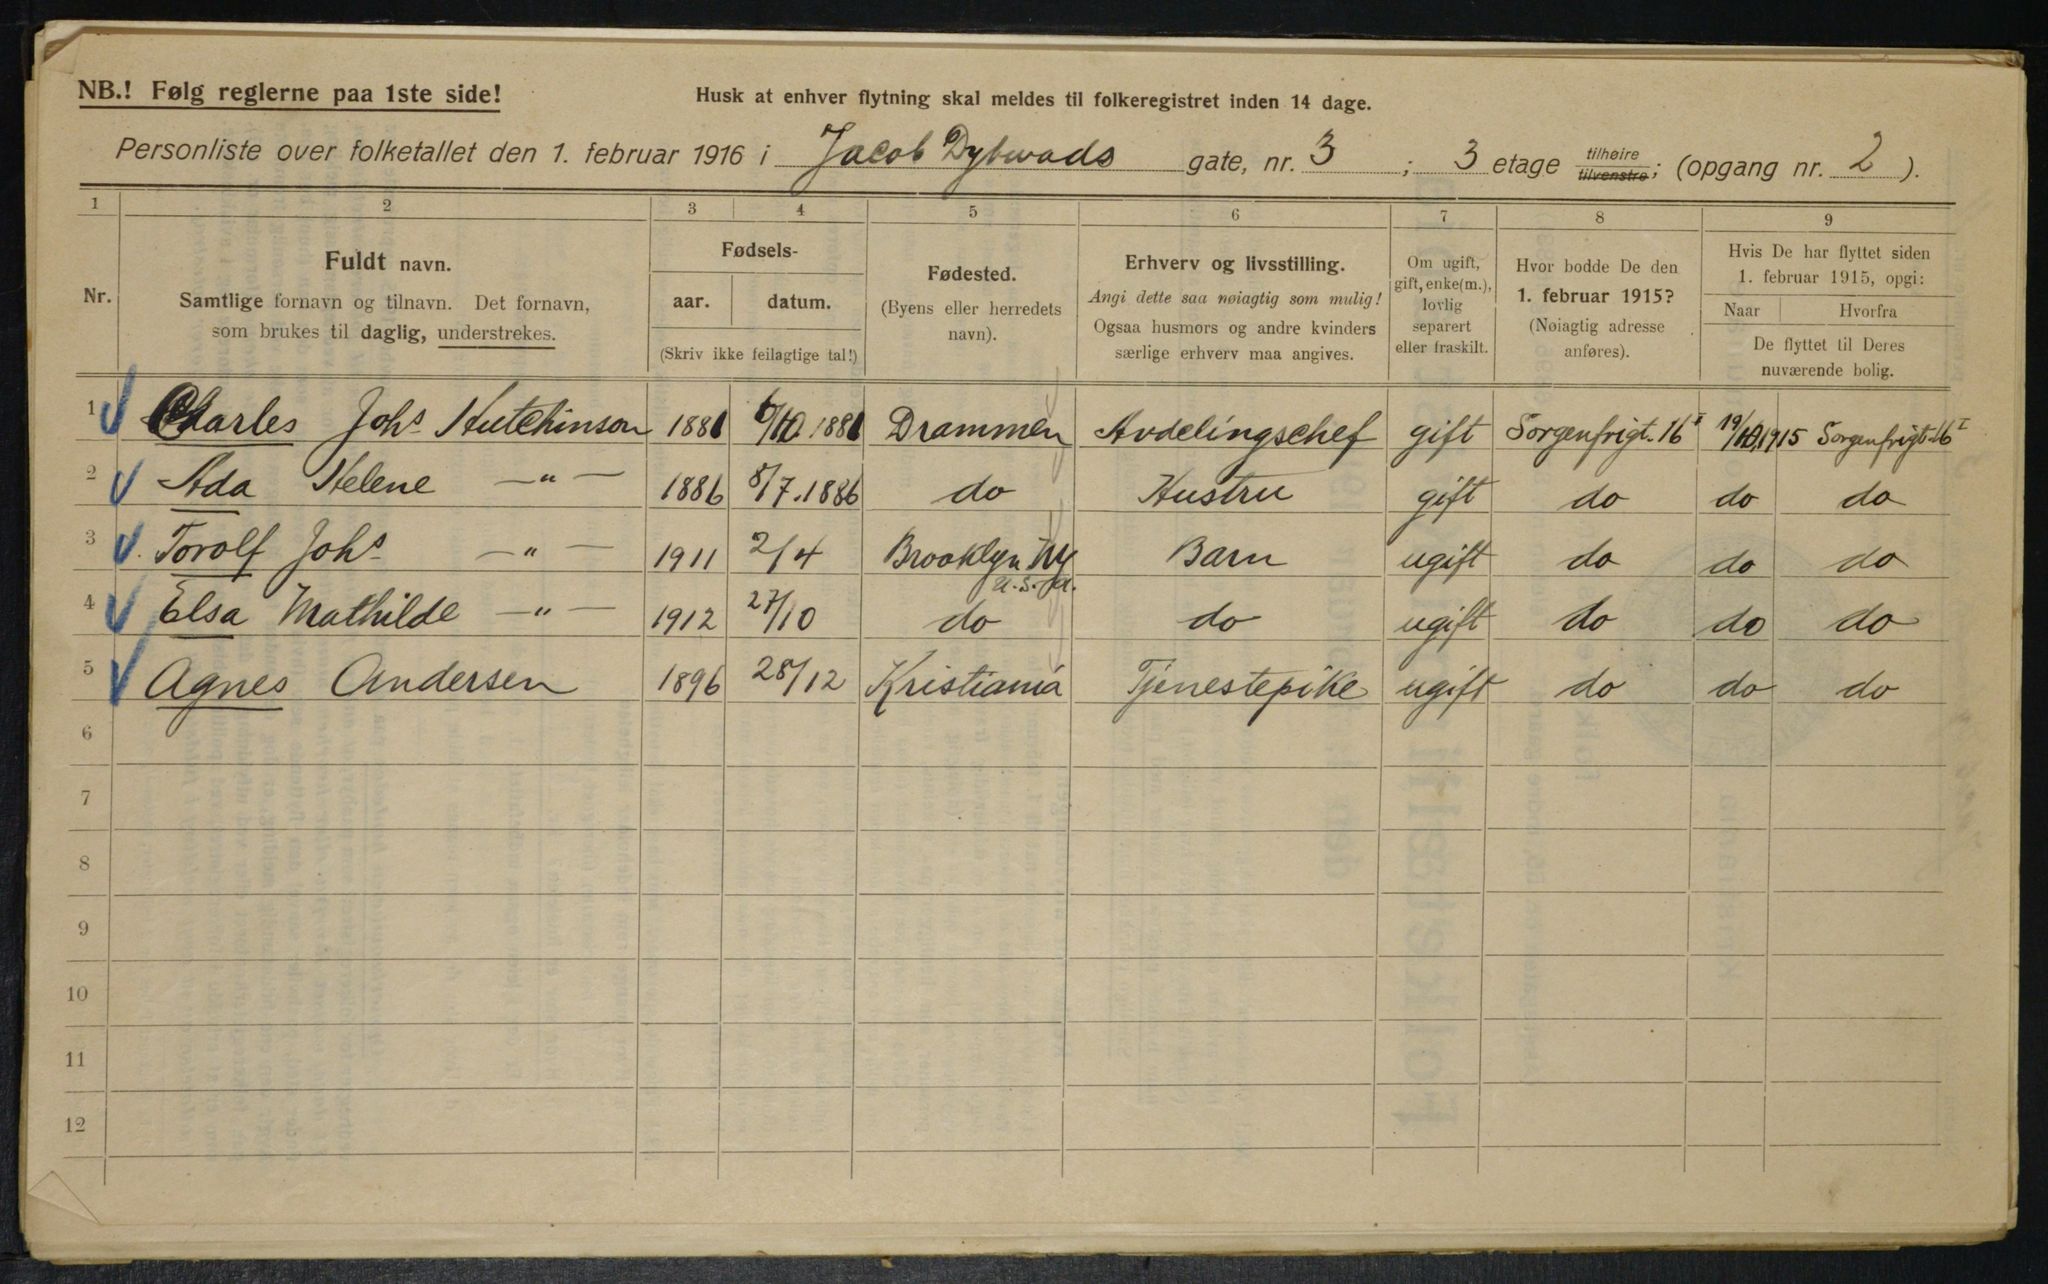 NB.! Følg reglerne paa 1ste side!
Husk at enhver flytning skal meldes til folkeregistret inden 14 dage.
Personliste over folketallet den 1. februar 1916 i Jacob Dybwads gate, nr. 3 ; 3 etage tilhøire tilvenstre; (opgang nr. 2 ).
1 2 3 4 5 6 7 8 9
Nr.
Fuldt navn.
Samtlige fornavn og tilnavn. Det fornavn,
som brukes til daglig, understrekes.
Fødsels-
aar. datum.
(Skriv ikke feilagtige tal!)
Fødested.
(Byens eller herredets
navn).
Erhverv og livsstilling.
Angi dette saa nøiagtig som mulig!
Ogsaa husmors og andre kvinders
særlige erhverv maa angives.
Om ugift,
gift, enke(m.),
lovlig
separert
eller fraskilt.
Hvor bodde De den
1. februar 1915?
(Nøiagtig adresse
anføres).
Hvis De har flyttet siden
1. februar 1915, opgi:
Naar Hvorfra
De flyttet til Deres
nuværende bolig.
1 Charles Johs Hutchinson 1881 6/10.1881 Drammen Avdelingschef gift Sorgenfrigt. 16 I 19/10.1915 Sorgenfrigt. 16 I
2 Ada Helene —"— 1886 8/7.1886 do Hustru gift do do do
3 Torolf Johs —"— 1911 2/4 Brooklyn NY Barn ugift do do do
U.S.A.
4 Elsa Mathilde —"— 1912 27/10 do do ugift do do do
5 Agnes Andersen 1896 28/12 Kristiania Tjenestepike ugift do do do
6
7
8
9
10
11
12